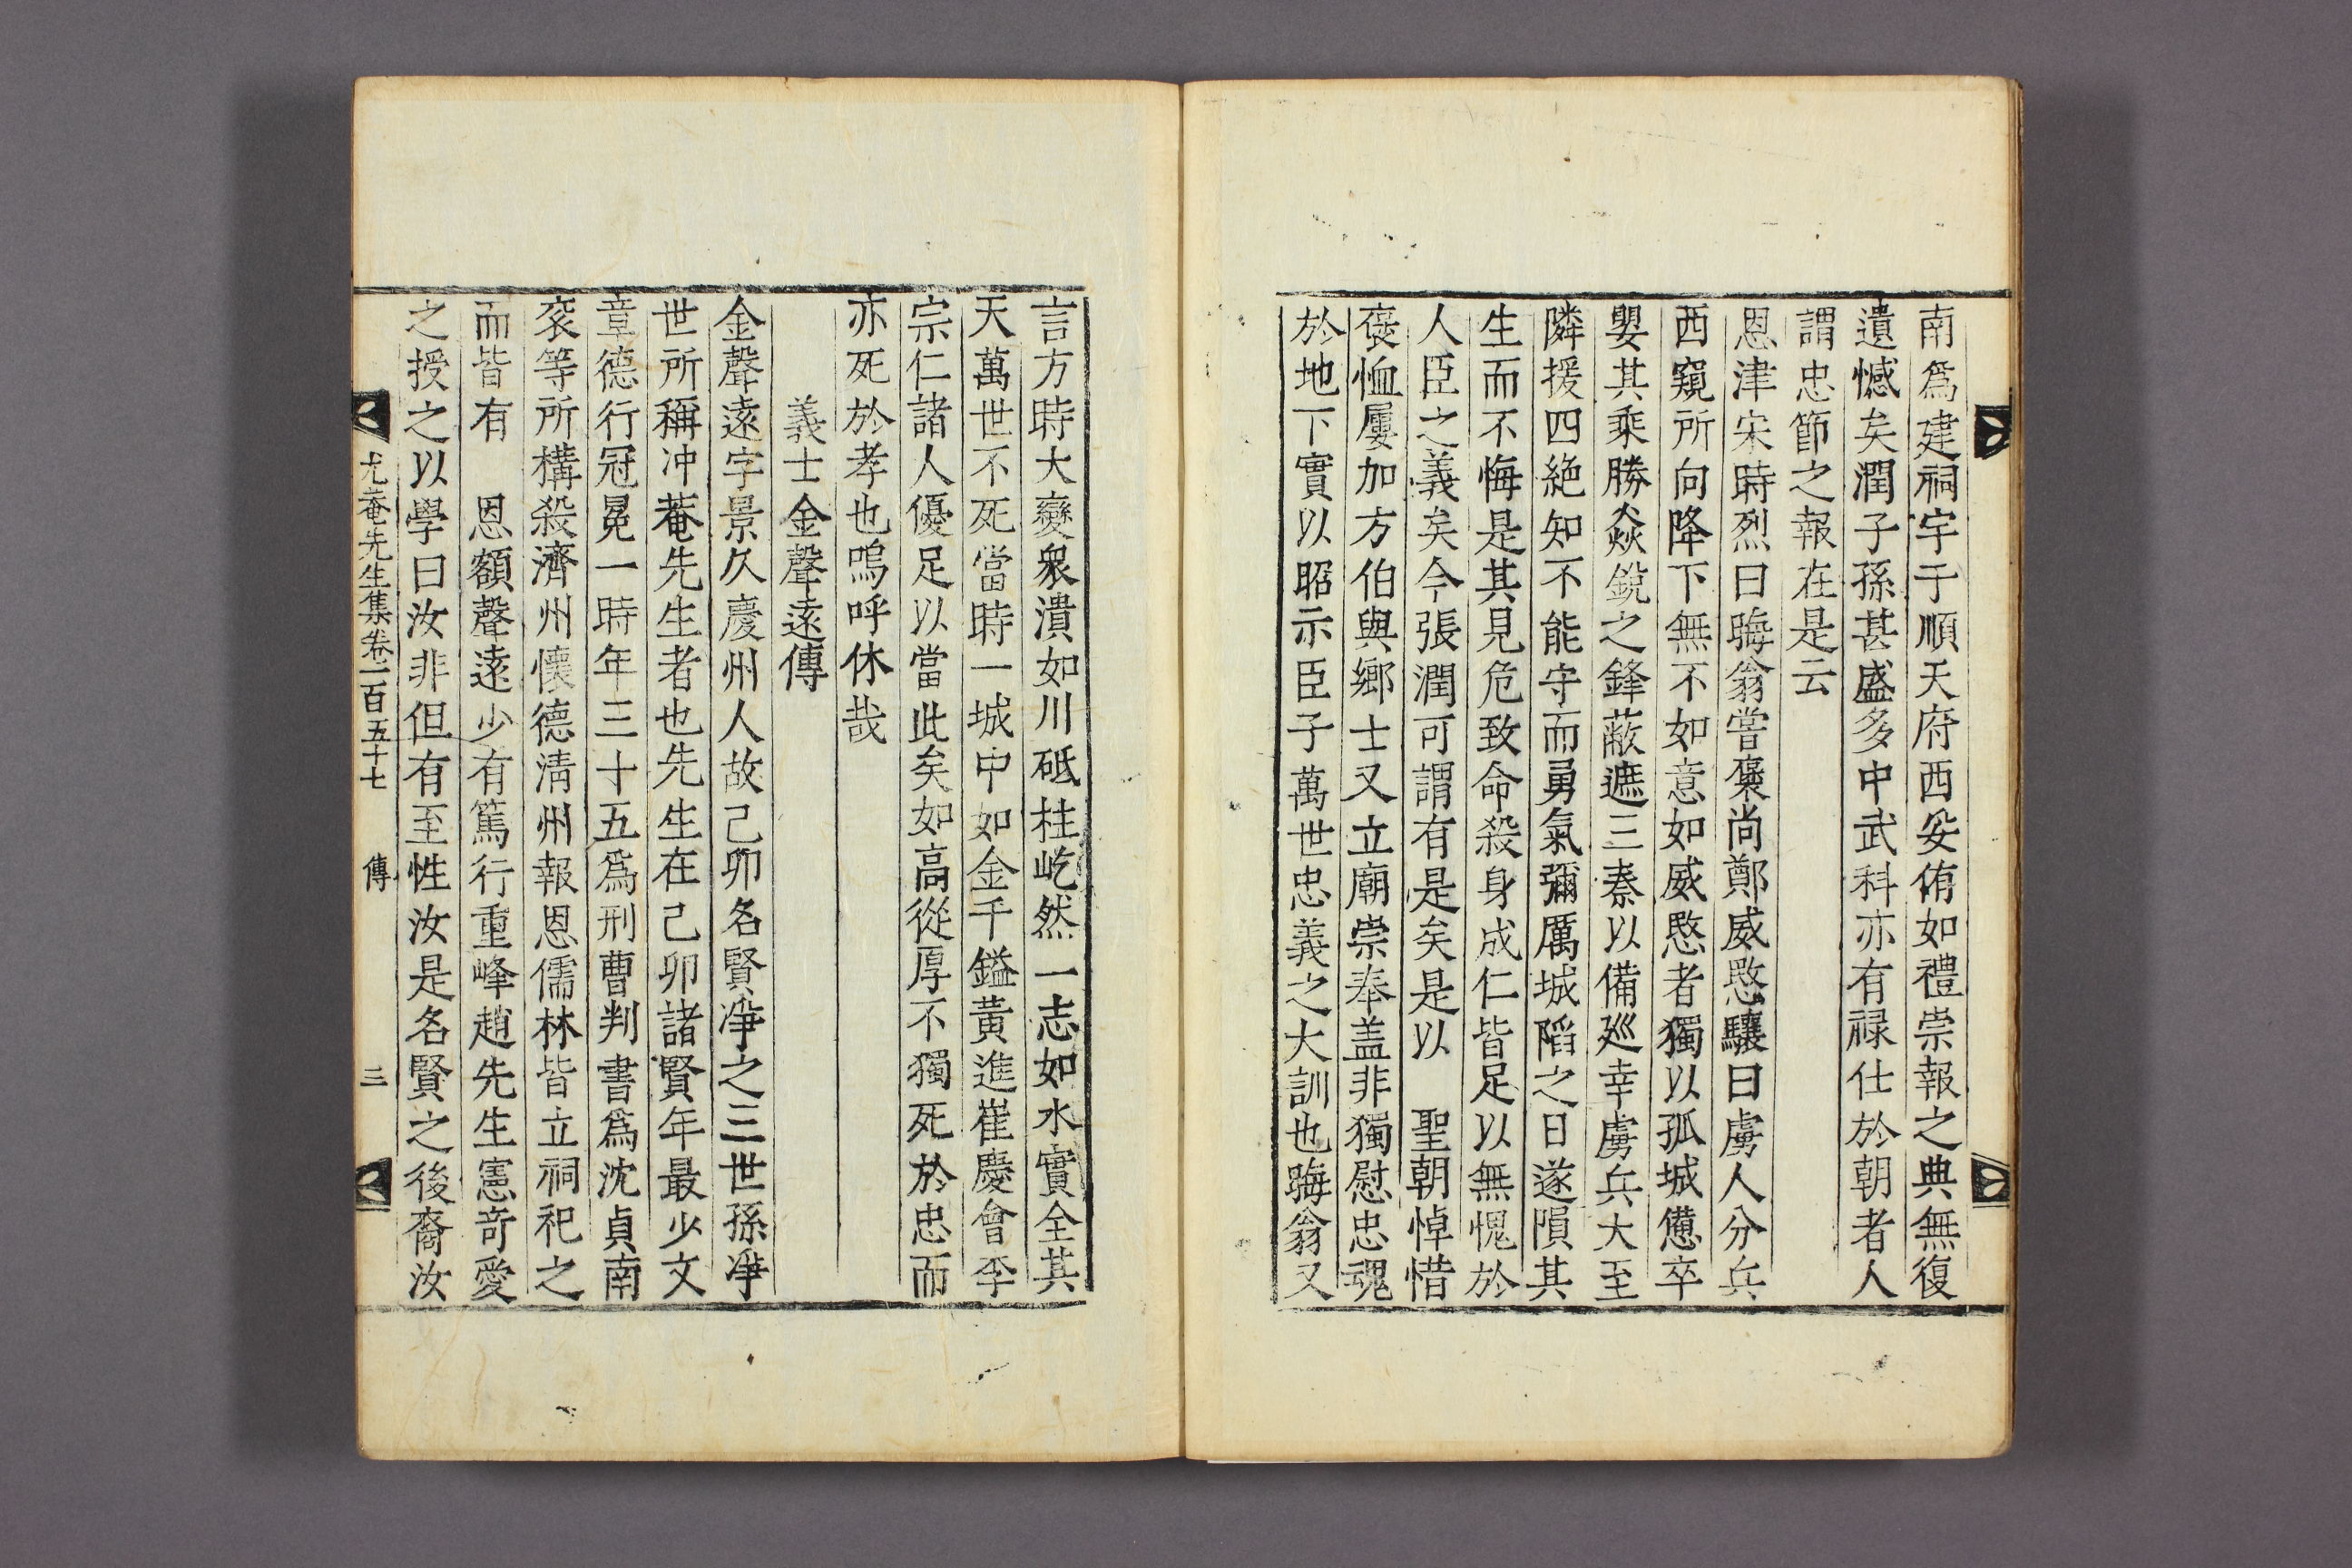 南爲建祠宇于順天府西妥侑如禮崇報之典無復
遺憾矣潤子孫甚盛多中武科亦有祿仕於朝者人
謂忠節之報在是云
恩津宋時烈曰晦翁嘗褒尚鄭威愍驤曰虜人分兵
西窺所向降下無不如意如威愍者獨以孤城憊卒
嬰其乘勝焱銳之鋒蔽遮三秦以備廵幸虜兵大至
隣援四絶知不能守而勇氣彌厲城陷之日遂隕其
生而不悔是其見危致命殺身成仁皆足以無愧於
人臣之義矣今張潤可謂有是矣是以　聖朝悼惜
褒恤屢加方伯與鄕士又立廟崇奉盖非獨慰忠魂
於地下實以昭示臣子萬世忠義之大訓也晦翁又
言方時大變衆潰如川砥柱屹然一志如水實全其
天萬世不死當時一城中如金千鎰黃進崔慶會李
宗仁諸人優足以當此矣如高從厚不獨死於忠而
亦死於孝也嗚呼休哉
義士金聲遠傳
金聲遠字景久慶州人故己卯名賢淨之三世孫淨
世所稱冲菴先生者也先生在己卯諸賢年最少文
章德行冠冕一時年三十五爲刑曹判書爲沈貞南
袞等所構殺濟州懷德淸州報恩儒林皆立祠祀之
而皆有　恩額聲遠少有篤行重峰趙先生憲奇愛
之授之以學曰汝非但有至性汝是名賢之後裔汝
尤菴先生集卷一百五十七　傳　三